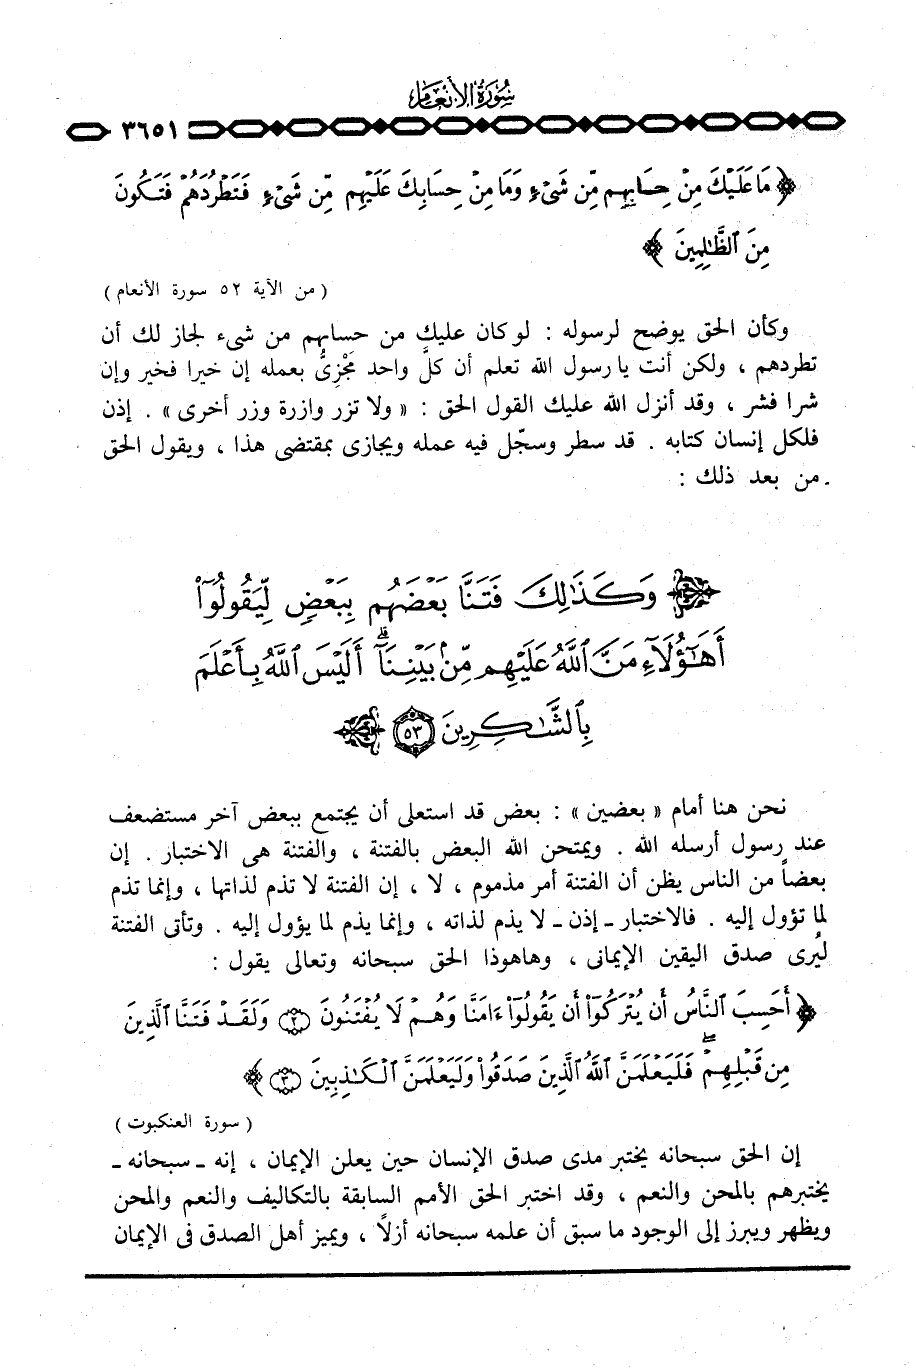 سُورَةُ الأَنعَام
٣٦٥١
﴿ مَا عَلَيْكَ مِنْ حِسَابِهِم مِّن شَىْءٍ وَمَا مِنْ حِسَابِكَ عَلَيْهِم مِّن شَىْءٍ فَتَطْرُدَهُمْ فَتَكُونَ
مِنَ ٱلظَّٰلِمِينَ ﴾
( من الآية ٥٢ سورة الأنعام )
وكأن الحق يوضح لرسوله : لو كان عليك من حسابهم من شىء لجاز لك أن
تطردهم ، ولكن أنت يا رسول الله تعلم أن كلَّ واحد مَجْزِىٌّ بعمله إن خيرا فخير وإن
شرا فشر ، وقد أنزل الله عليك القول الحق : « ولا تزر وازرة وزر أخرى » . إذن
فلكل إنسان كتابه . قد سطر وسجّل فيه عمله ويجازى بمقتضى هذا ، ويقول الحق
من بعد ذلك :
وَكَذَٰلِكَ فَتَنَّا بَعْضَهُم بِبَعْضٍ لِّيَقُولُوٓا۟
أَهَٰٓؤُلَآءِ مَنَّ ٱللَّهُ عَلَيْهِم مِّنۢ بَيْنِنَآ ۗ أَلَيْسَ ٱللَّهُ بِأَعْلَمَ
بِٱلشَّٰكِرِينَ ٥٣
نحن هنا أمام « بعضين » : بعض قد استعلى أن يجتمع ببعض آخر مستضعف
عند رسول أرسله الله . ويمتحن الله البعض بالفتنة ، والفتنة هى الاختبار . إن
بعضاً من الناس يظن أن الفتنة أمر مذموم ، لا ، إن الفتنة لا تذم لذاتها ، وإنما تذم
لما تؤول إليه . فالاختبار ـ إذن ـ لا يذم لذاته ، وإنما يذم لما يؤول إليه . وتأتى الفتنة
ليُرى صدق اليقين الإيمانى ، وهاهوذا الحق سبحانه وتعالى يقول :
﴿ أَحَسِبَ ٱلنَّاسُ أَن يُتْرَكُوٓا۟ أَن يَقُولُوٓا۟ ءَامَنَّا وَهُمْ لَا يُفْتَنُونَ ٢ وَلَقَدْ فَتَنَّا ٱلَّذِينَ
مِن قَبْلِهِمْ ۖ فَلَيَعْلَمَنَّ ٱللَّهُ ٱلَّذِينَ صَدَقُوا۟ وَلَيَعْلَمَنَّ ٱلْكَٰذِبِينَ ٣ ﴾
( سورة العنكبوت )
إن الحق سبحانه يختبر مدى صدق الإنسان حين يعلن الإيمان ، إنه ـ سبحانه ـ
يختبرهم بالمحن والنعم ، وقد اختبر الحق الأمم السابقة بالتكاليف والنعم والمحن
ويظهر ويبرز إلى الوجود ما سبق أن علمه سبحانه أزلاً ، ويميز أهل الصدق فى الإيمان